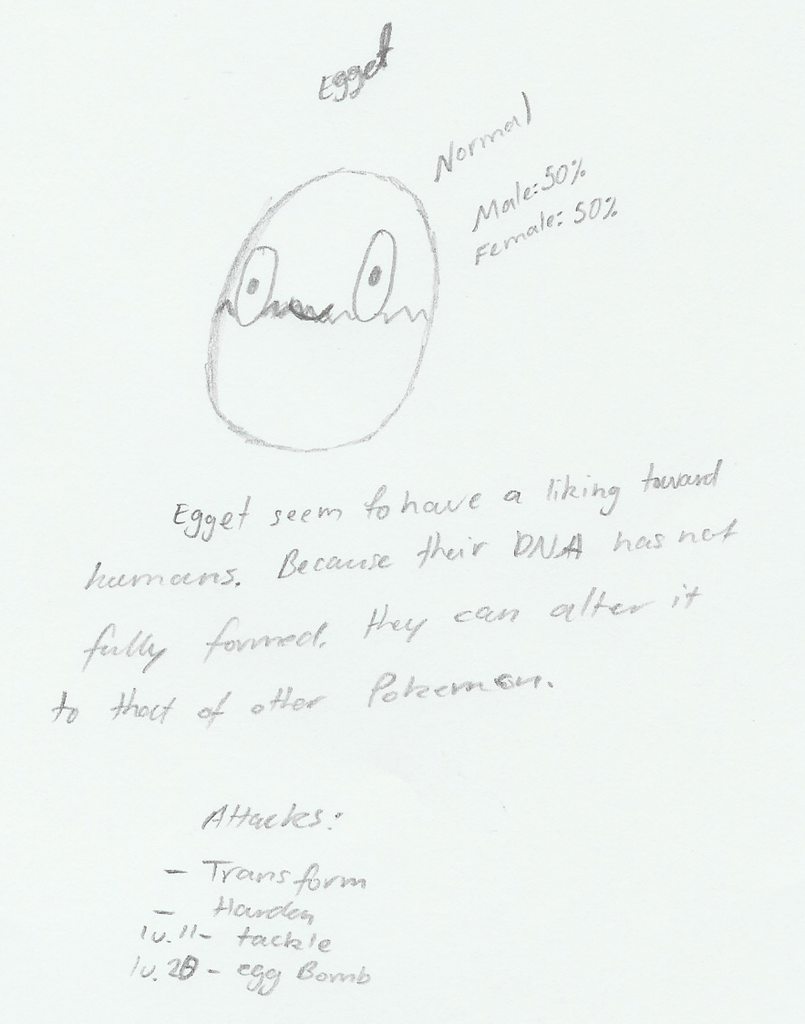 Egget
Normal
Male: 50%
Female: 50%
Egget seem to have a liking toward
humans. Because their DNA has not
fully formed, they can alter it
to that of other Pokemon.
Attacks:
- Transform
- Harden
lv. 11- tackle
lv. 20 - egg Bomb